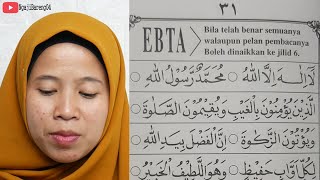 NgajiBareng04
٣١
EBTA
Bila telah benar semuanya
walaupun pelan pembacanya
Boleh dinaikkan ke jilid 6.
لَآ إِلٰهَ إِلَّا اللّٰهُ ○ مُحَمَّدٌ رَّسُوْلُ اللّٰهِ ○
الَّذِيْنَ يُؤْمِنُوْنَ بِالْغَيْبِ وَيُقِيْمُوْنَ الصَّلٰوةَ
وَيُؤْتُوْنَ الزَّكٰوةَ ○ إِنَّ الْفَضْلَ بِيَدِ اللّٰهِ ○
لِكُلِّ أَوَّابٍ حَفِيْظٍ ○ وَهُوَ اللَّطِيْفُ الْخَبِيْرُ ○